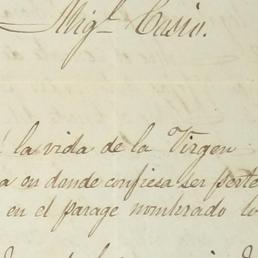 Migl. Cusio.
la vida de la Virgen
a en donde confiesa ser perte
en el parage nombrado lo